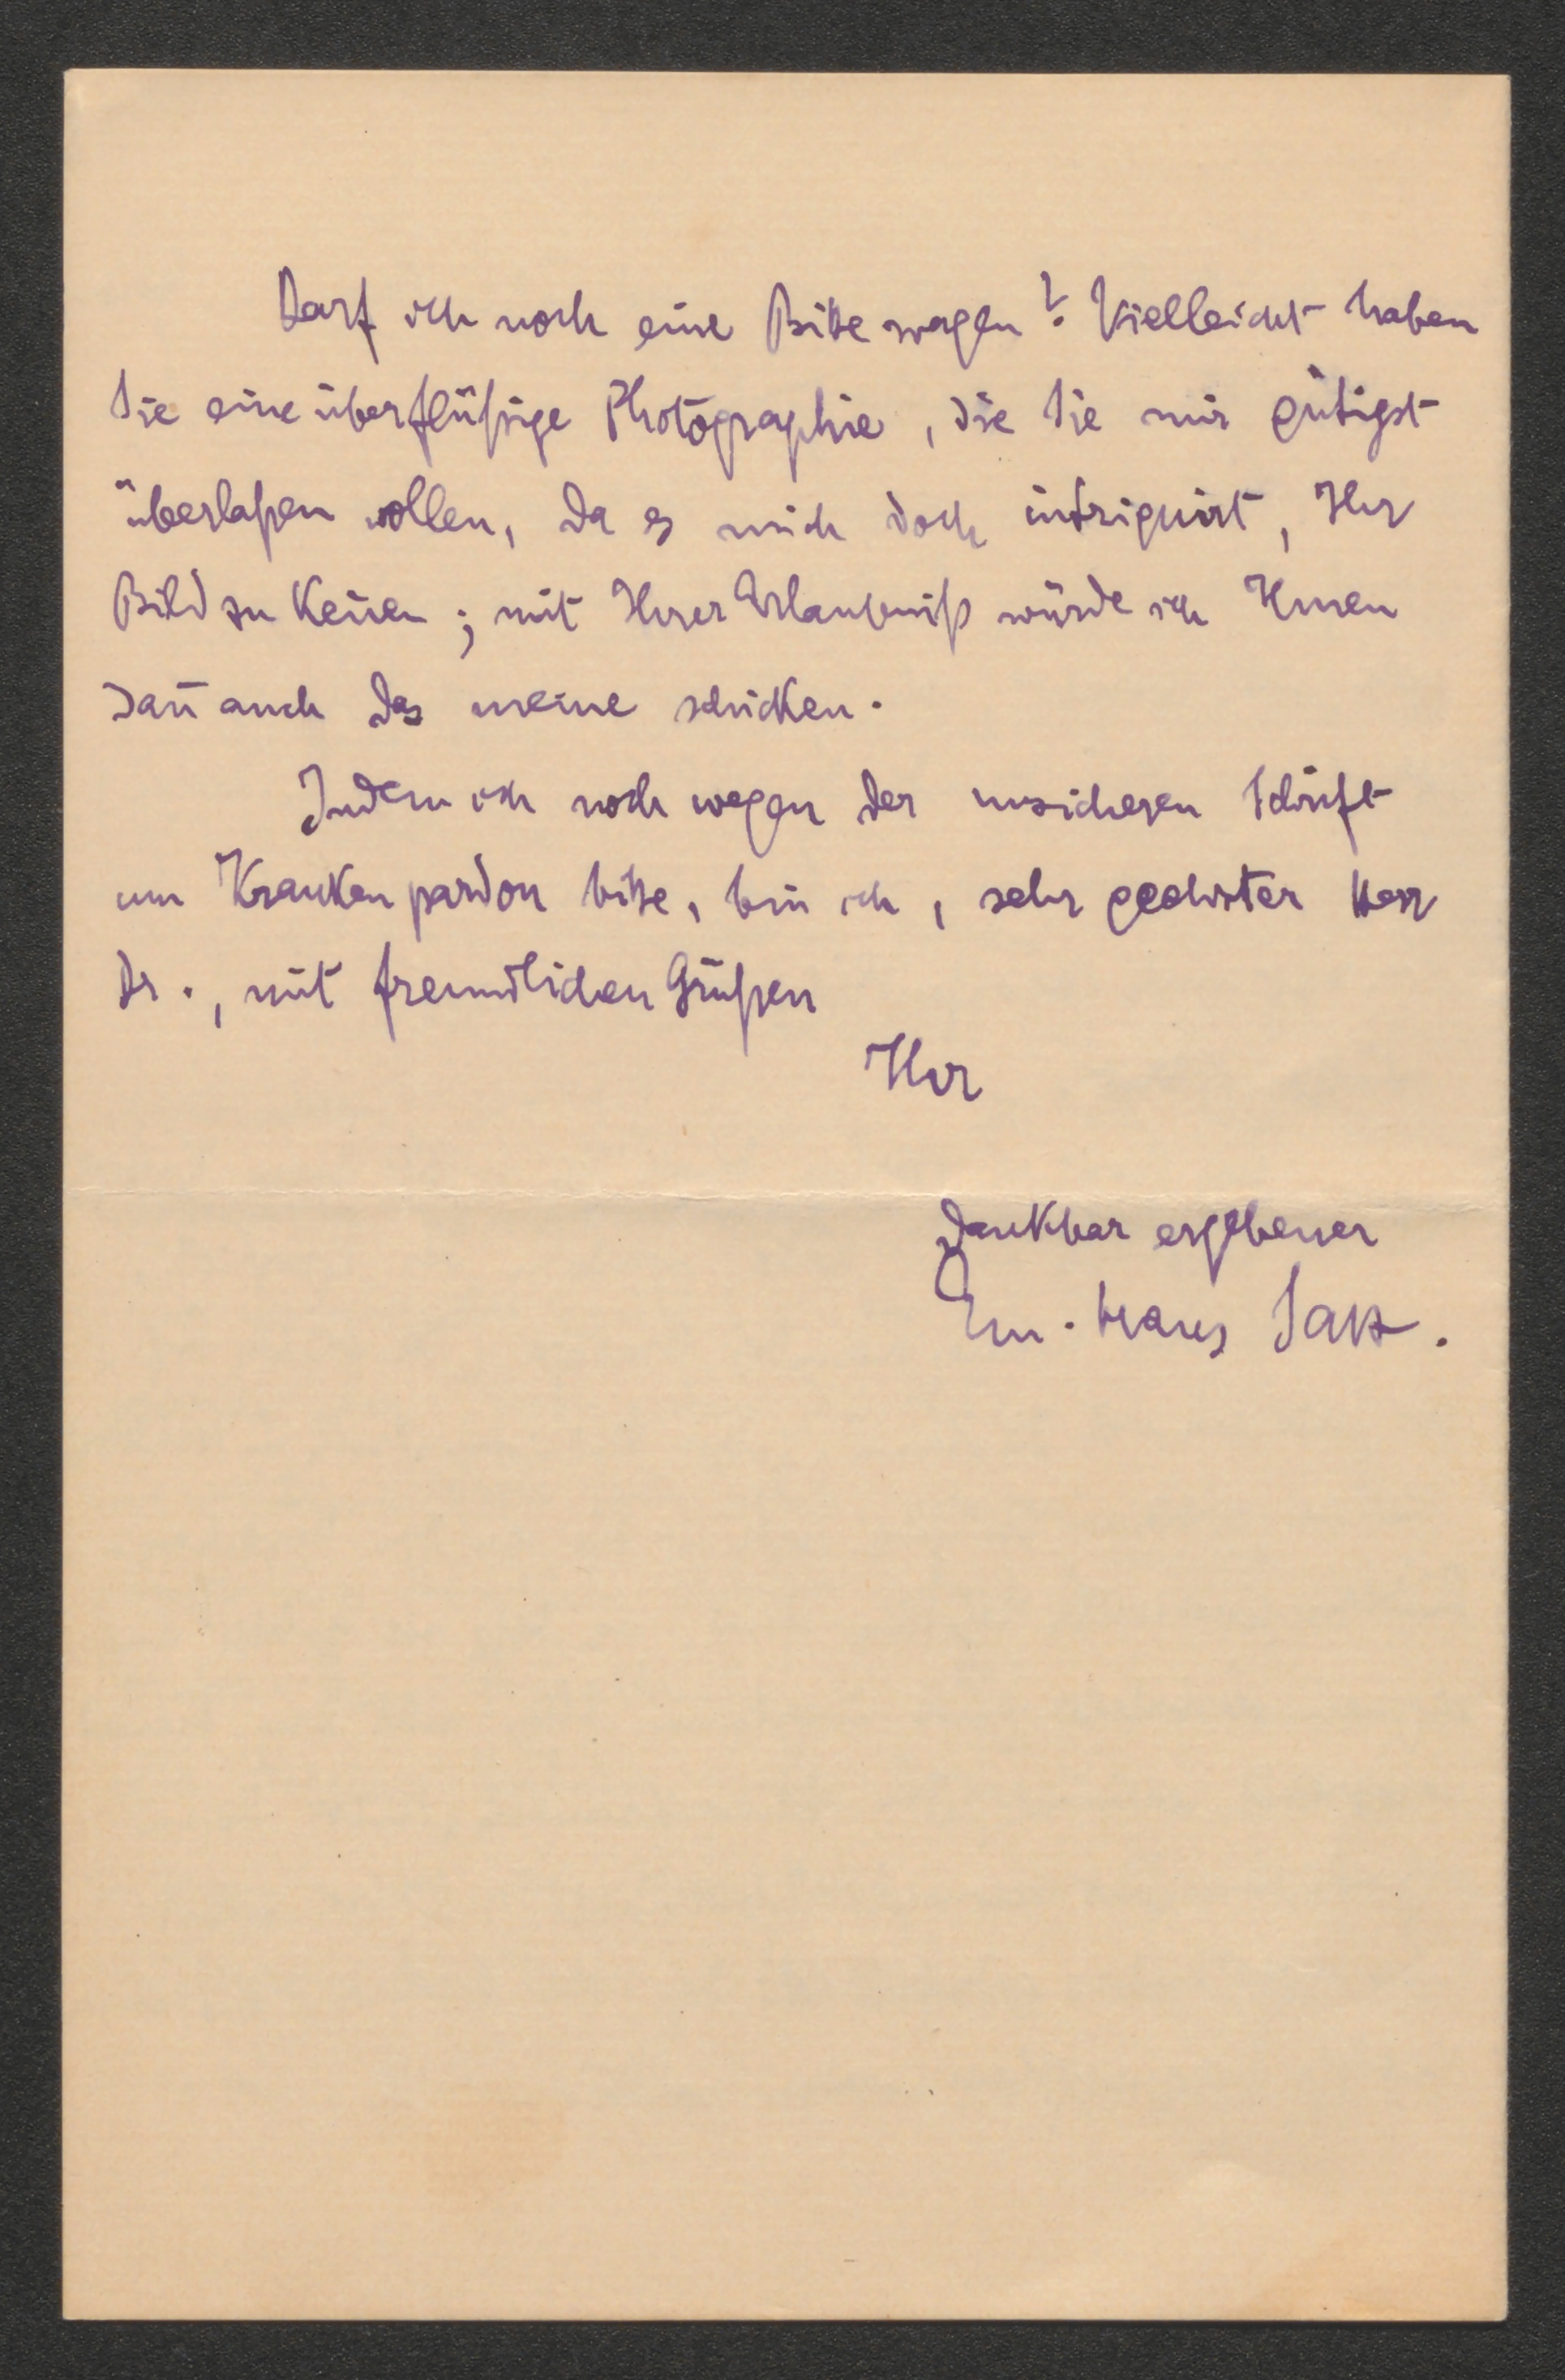 Darf ich noch eine Bitte wagen? Vielleicht haben
Sie eine überflüßige Photographie, die Sie mir gütigst
überlaßen wollen, da es mich doch intriguirt, Ihr
Bild zu keñen; mit Ihrer Erlaubniß würde ich Ihnen
dañ auch das meine schicken.
Indem ich noch wegen der unsicheren Schrift
um Krankenpardon bitte, bin ich, sehr geehrter Herr
Dr., mit freundlichen Grüßen
Ihr
dankbar ergebener
Em. Hans Sax.